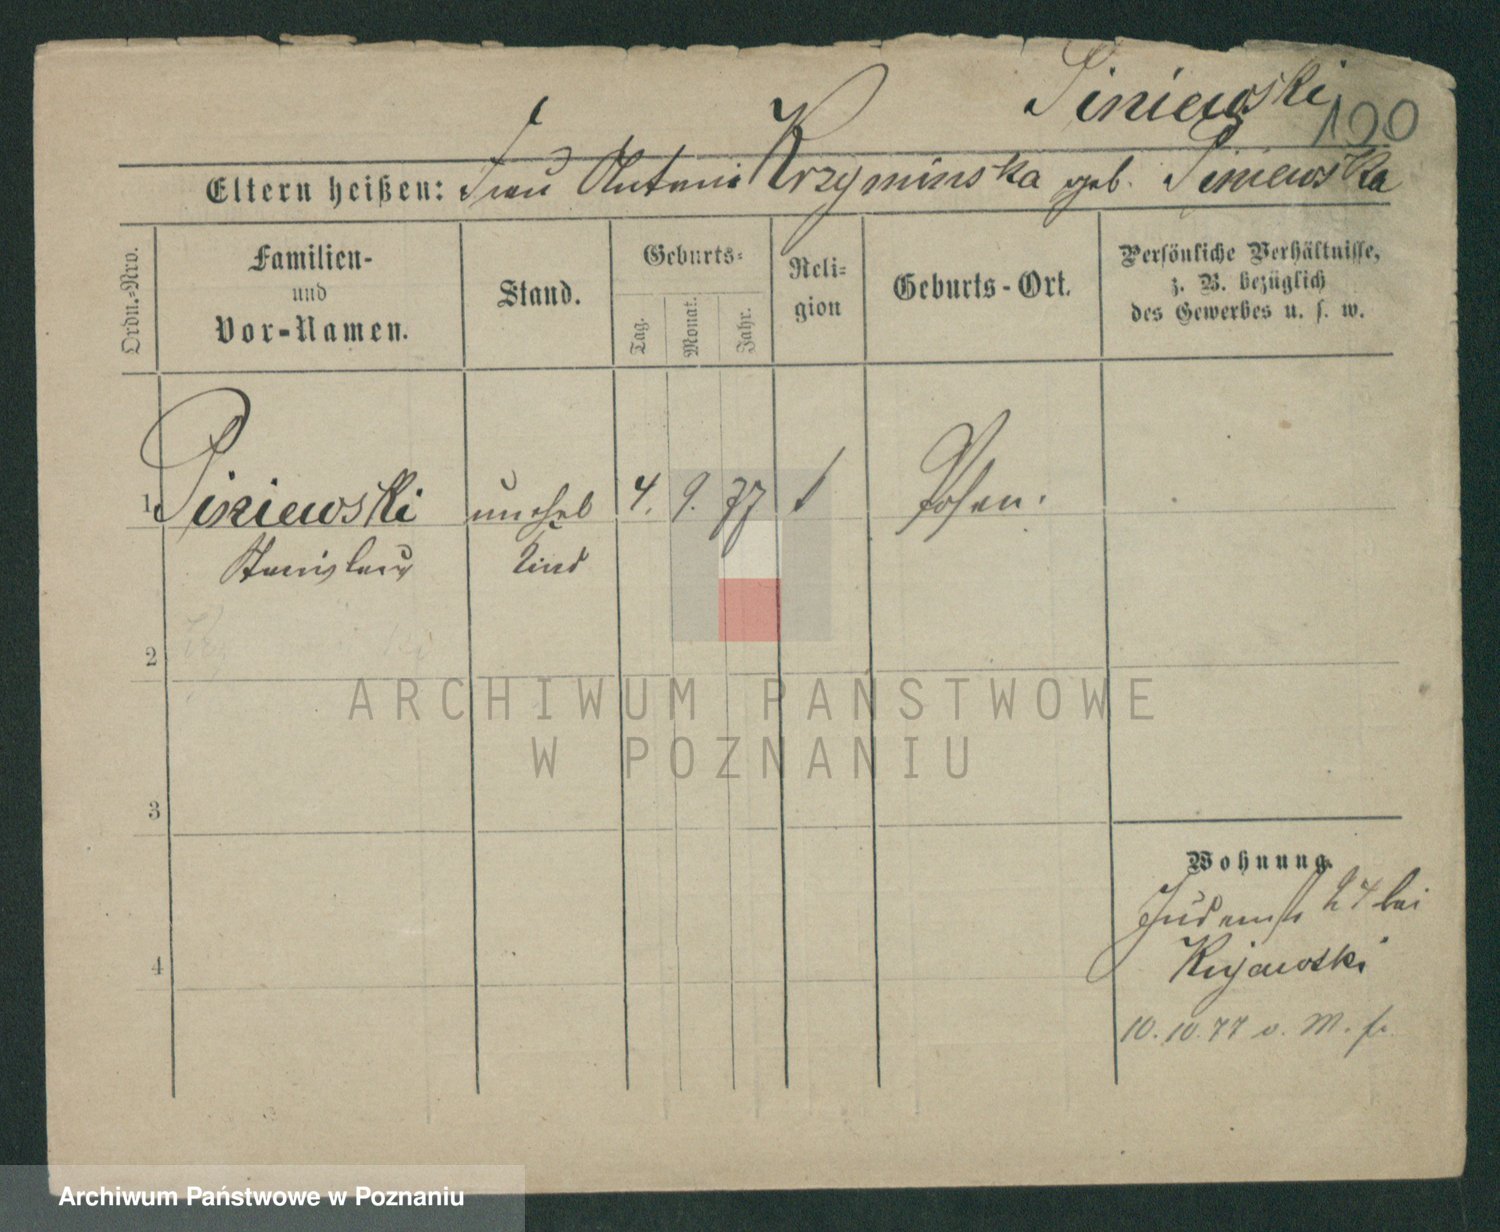 Piniewski
190
Eltern heißen: Frau Antoni Krzyminska geb. Piniewska
Ordn.-Nro.
Familien-
und
Vor-Namen.
Stand.
Geburts-
Tag.
Monat.
Jahr.
Reli-
gion
Geburts-Ort.
Persönliche Verhältnisse,
z. B. bezüglich
des Gewerbes u. s. w.
1 Piniewski unehel 4. 9. 77 Posen.
Stanislaus Kind
2
3
4
Wohnung.
Judenstr 24 bei
Kujawski
10. 10. 77 v. M.
ARCHIWUM PAŃSTWOWE
W POZNANIU
Archiwum Państwowe w Poznaniu